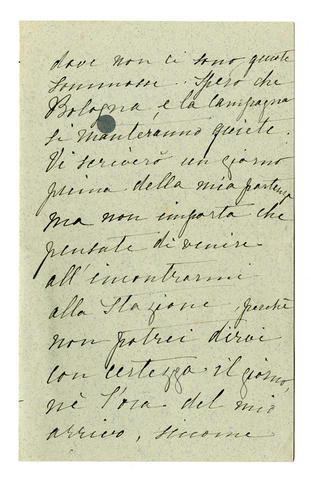 dove non ci sono queste
sommosse. Spero che
Bologna, e la campagna
si manteranno quiete.
Vi scriverò un giorno
prima della mia partenza
ma non importa che
pensate di venire
all'incontrarmi
alla Stazione, perchè
non potrei dirvi
con certezza il giorno,
nè l'ora del mio
arrivo, siccome